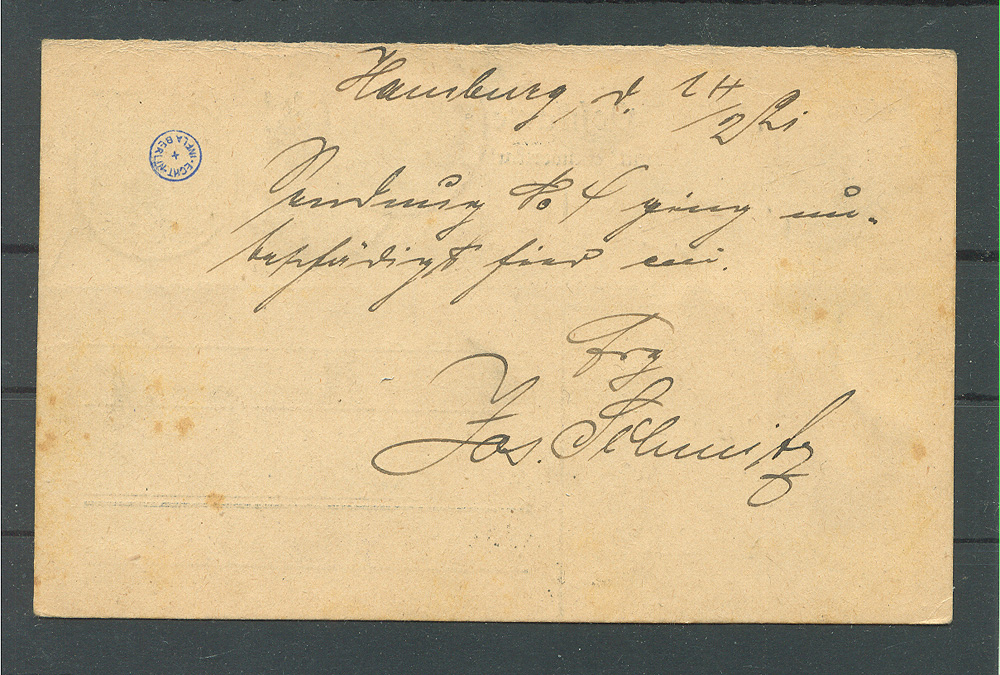 Hamburg, d. 14/2 21
ECHT INFLA BERLIN
Sendung No 4 ging un-
beschädigt hier ein.
Jos. Schmitz